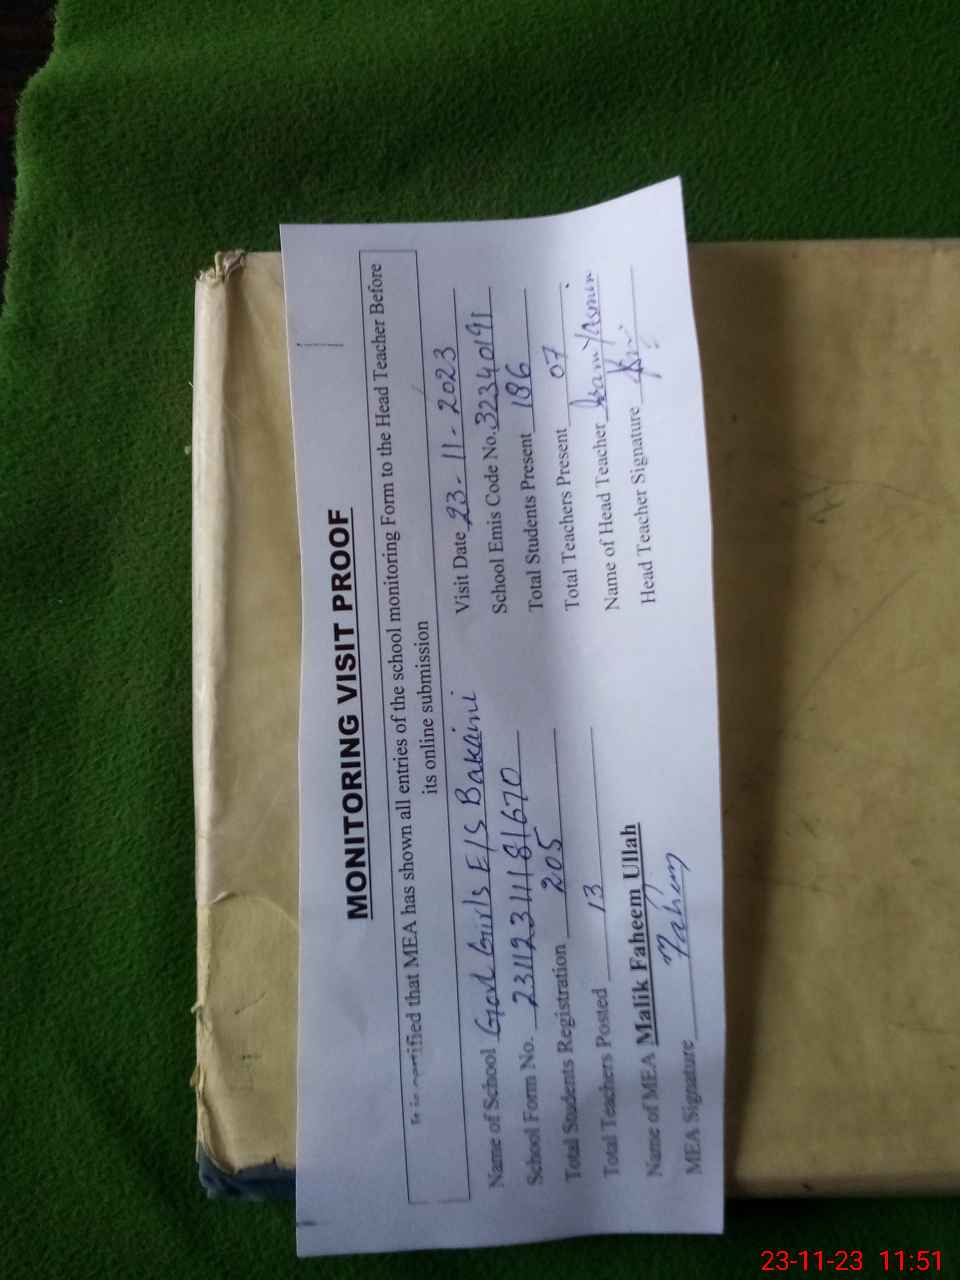 MONITORING VISIT PROOF
It is certified that MEA has shown all entries of the school monitoring Form to the Head Teacher Before
its online submission
Name of School Govt Girls E/S Bakaini
Visit Date 23-11-2023
School Form No. 231123111811670
School Emis Code No. 32340191
Total Students Registration 205
Total Students Present 186
Total Teachers Posted 13
Total Teachers Present 07
Name of MEA Malik Faheem Ullah
Name of Head Teacher Yasmin
MEA Signature Fahem
Head Teacher Signature
23-11-23 11:51